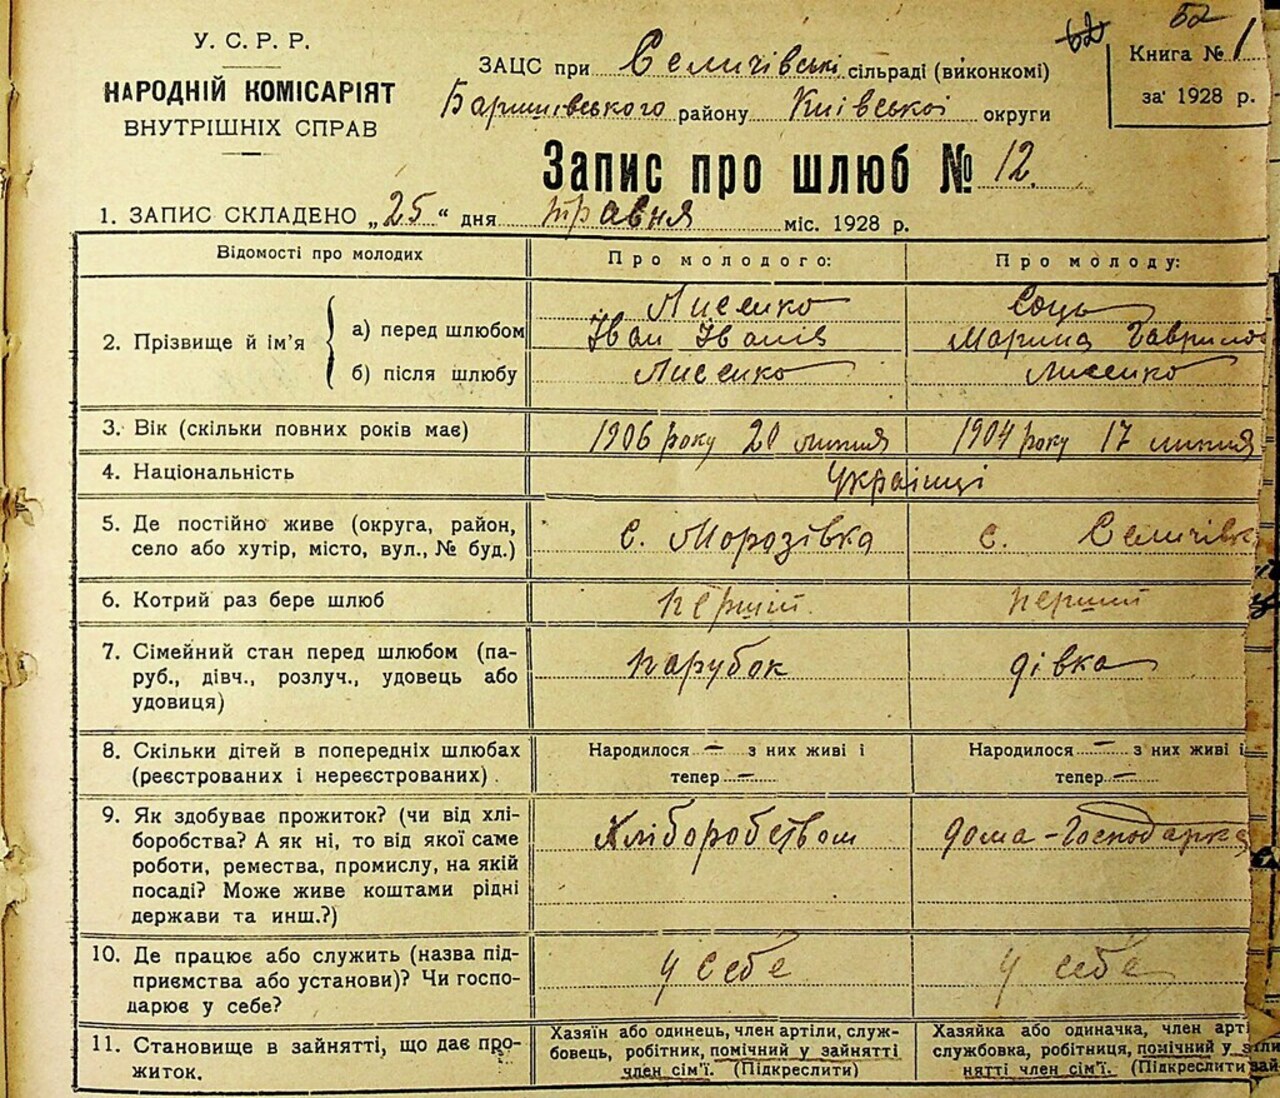 У. С. Р. Р.
НАРОДНІЙ КОМІСАРІЯТ
ВНУТРІШНІХ СПРАВ
62
52
ЗАЦС при Селичівські сільраді (виконкомі)
Баришівського району Київської округи
Книга № 1
за 1928 р.
Запис про шлюб № 12.
1. ЗАПИС СКЛАДЕНО „25“ дня травня міс. 1928 р.
Відомості про молодих
Про молодого:
Про молоду:
2. Прізвище й ім'я
а) перед шлюбом
Лисенко
Іван Іванів
Соць
Марина Гаврилов
б) після шлюбу
Лисенко
Лисенко
3. Вік (скільки повних років має)
1906 року 20 липня
1904 року 17 липня
4. Національність
Українці
5. Де постійно живе (округа, район,
село або хутір, місто, вул., № буд.)
с. Морозівка
с. Селичівк
6. Котрий раз бере шлюб
перший
перший
7. Сімейний стан перед шлюбом (па-
руб., дівч., розлуч., удовець або
удовиця)
парубок
дівка
8. Скільки дітей в попередніх шлюбах
(реєстрованих і нереєстрованих).
Народилося — з них живі і
тепер —
Народилося — з них живі і
тепер —
9. Як здобуває прожиток? (чи від хлі-
боробства? А як ні, то від якої саме
роботи, ремества, промислу, на якій
посаді? Може живе коштами рідні
держави та инш.?)
Хліборобством
дома-Господарка
10. Де працює або служить (назва під-
приємства або установи)? Чи госпо-
дарює у себе?
у себе
у себе
11. Становище в зайнятті, що дає про-
житок.
Хазяїн або одинець, член артіли, служ-
бовець, робітник, помічний у зайнятті
член сім'ї. (Підкреслити)
Хазяйка або одиначка, член арті
службовка, робітниця, помічний у з
нятті член сім'ї. (Підкреслити)